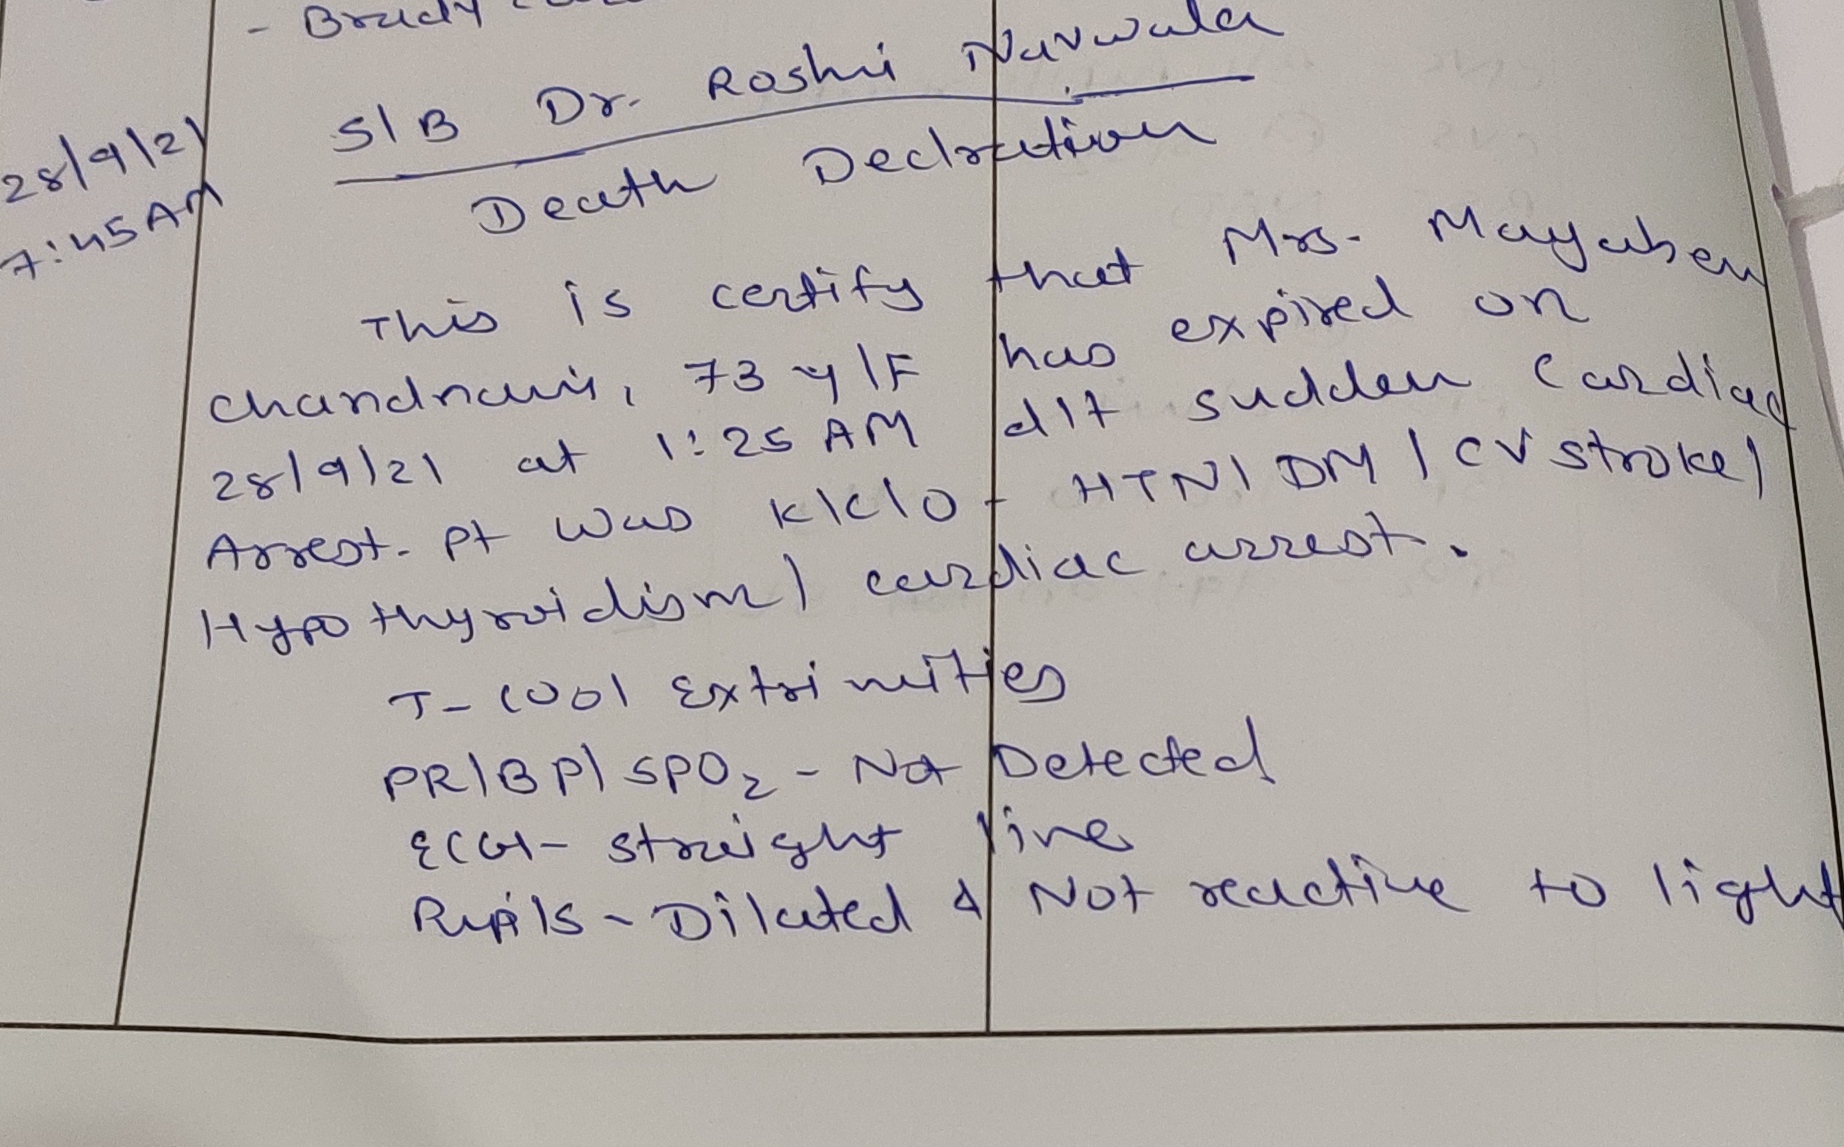 - Brady
28/9/21 S/B Dr. Roshni Narwala
7:45 AM Death Declration
This is certify that Mrs. Mayaben
chandnani, 73 y/F has expired on
28/9/21 at 1:25 AM d/t sudden Cardiac
Arrest. Pt was k/c/o - HTN/ DM / CV stroke/
Hypothyroidism/ cardiac arrest.
T- cool Extrimities
PR/BP/ SPO2 - Not Detected
ECG- straight line
Pupils - Dilated & Not reactive to light